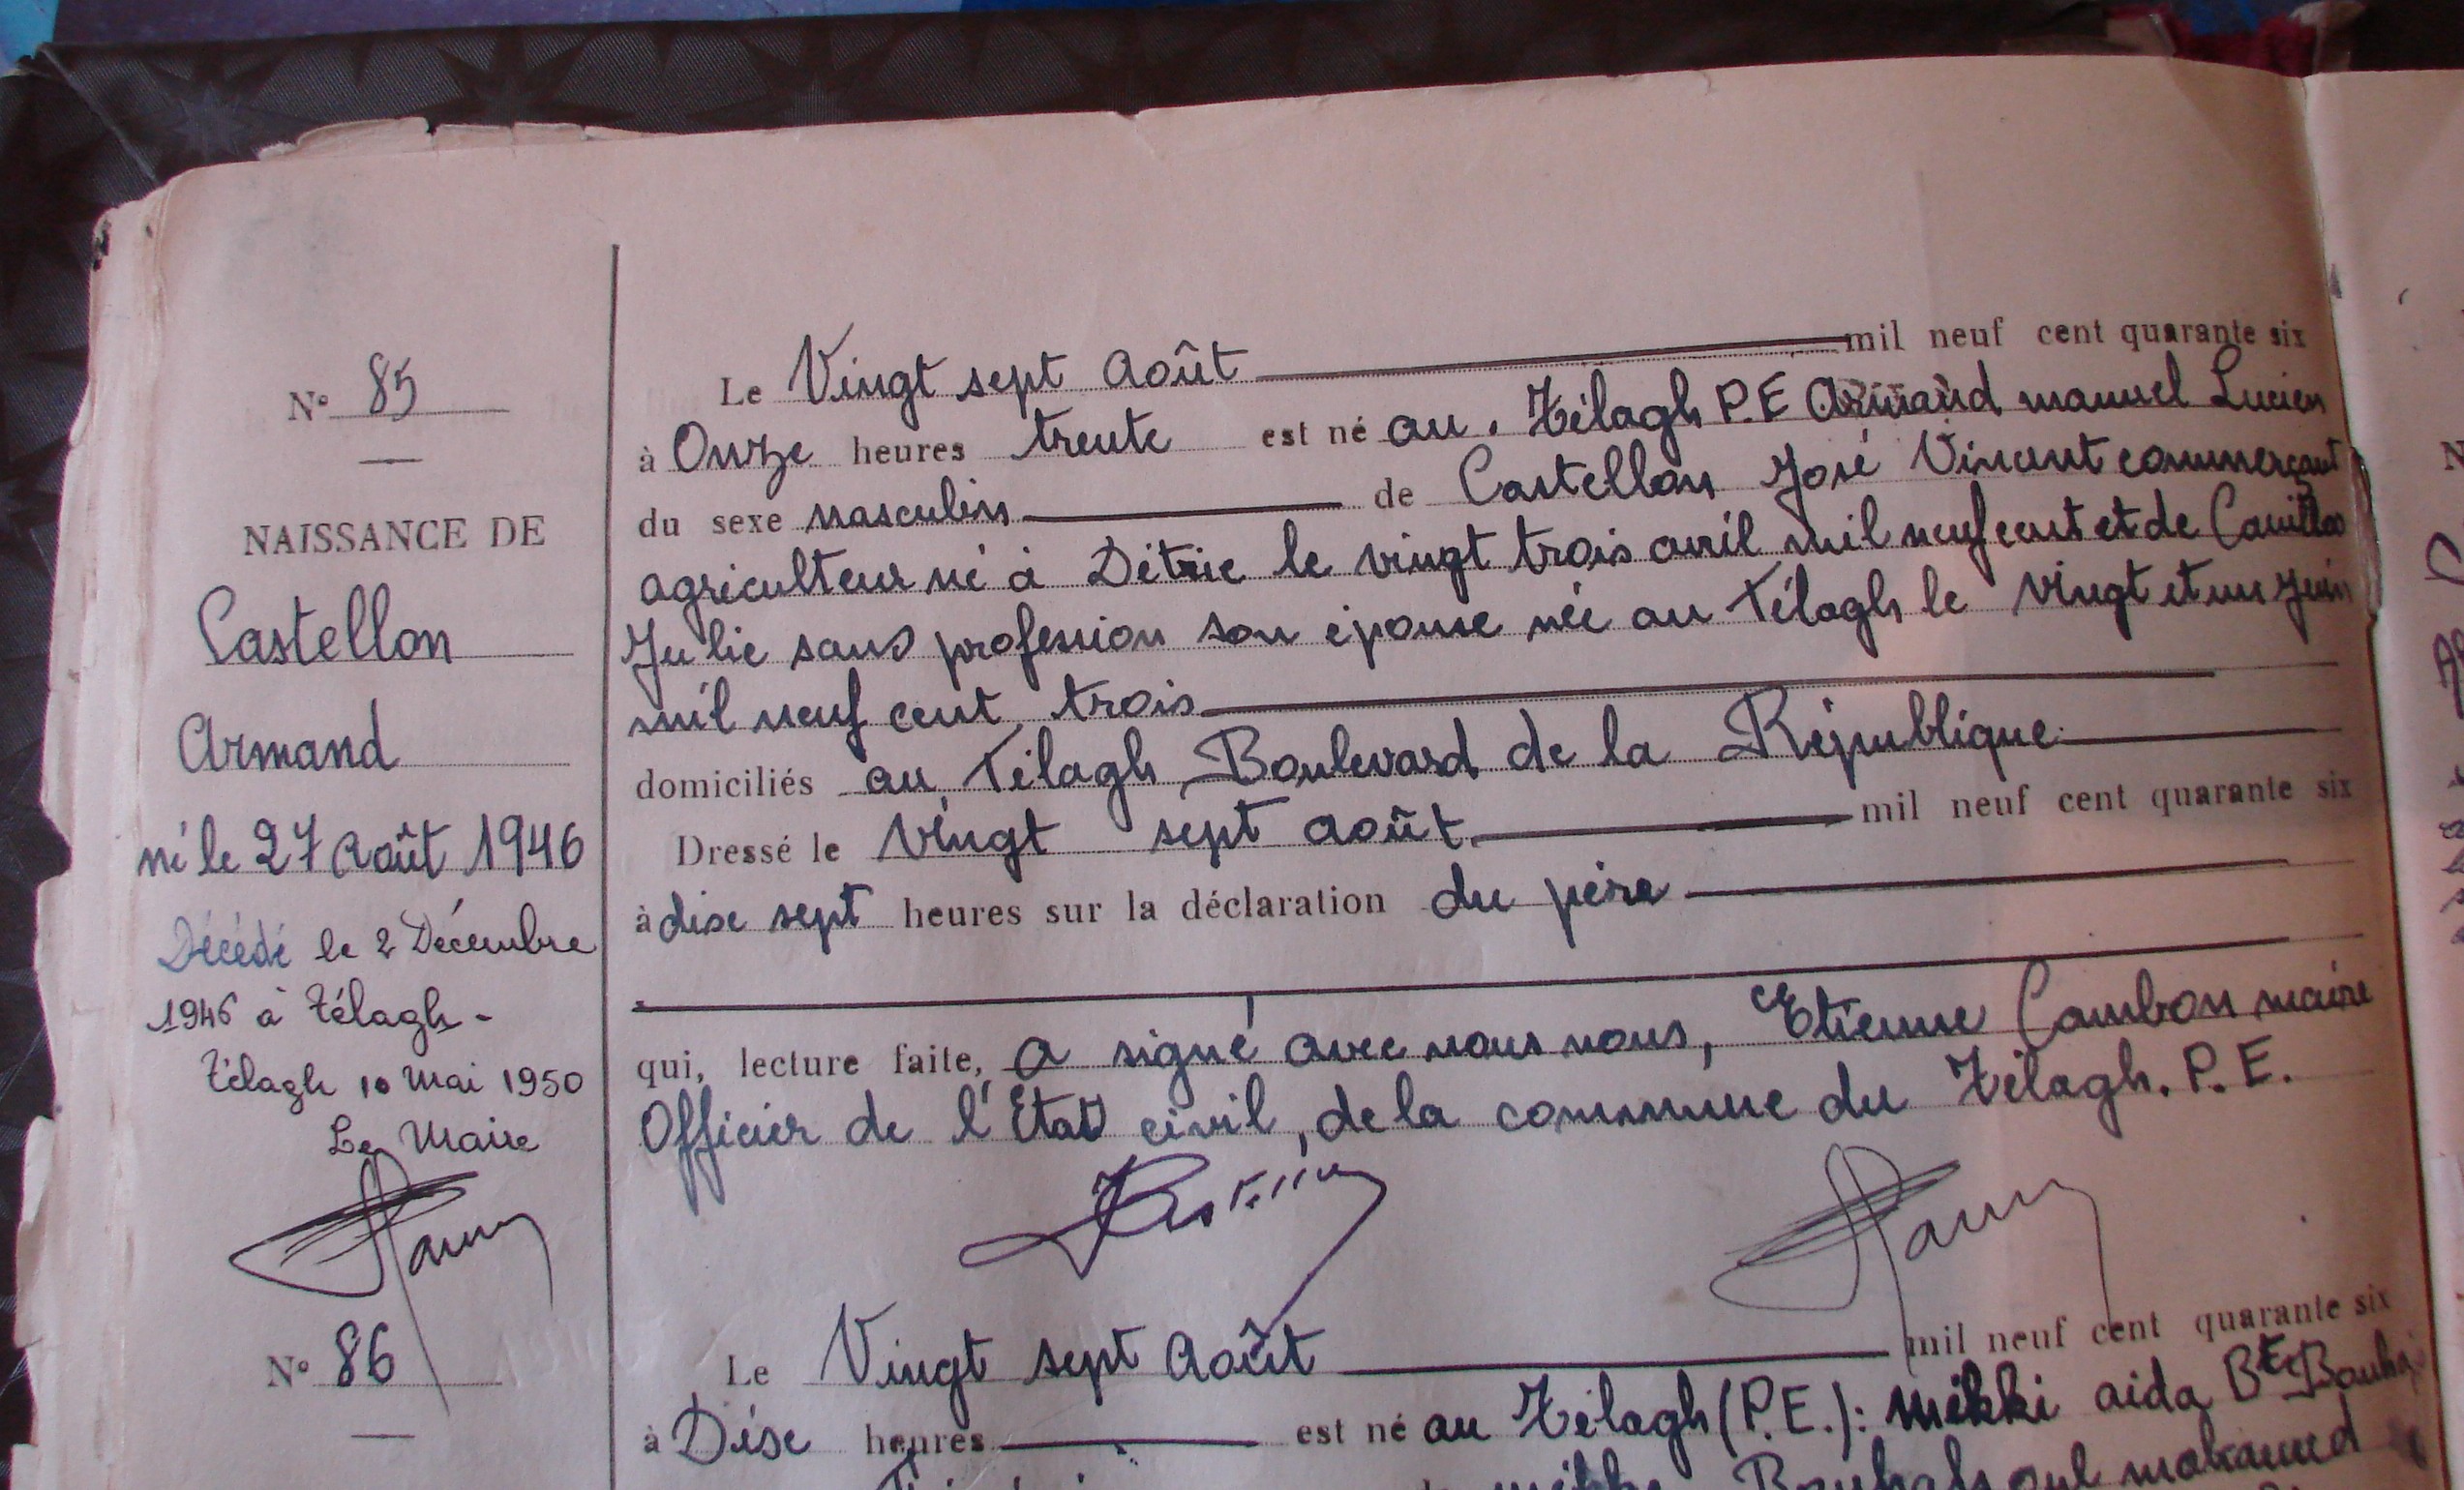 N° 85
NAISSANCE DE
Castellon
Armand
né le 27 Août 1946
Décédé le 2 Décembre
1946 à Télagh -
Télagh 10 Mai 1950
Le Maire
Le Vingt sept Août mil neuf cent quarante six
à Onze heures trente est né au Télagh P.E Armand manuel Lucien
du sexe masculin de Castellon José Vincent commerçant
agriculteur né à Détrie le vingt trois avril mil neuf cent et de
Julie sans profession son épouse née au Télagh le vingt et un Juin
mil neuf cent trois
domiciliés au Télagh Boulevard de la République
Dressé le Vingt sept août mil neuf cent quarante six
à dise sept heures sur la déclaration du père
qui, lecture faite, a signé avec nous nous, Etienne Cambon maire
Officier de l'Etat civil, de la commune du Télagh. P. E.
N° 86
Le Vingt sept Août mil neuf cent quarante six
à Dise heures est né au Télagh (P.E.): Mikki aida Bt
oul mohamed